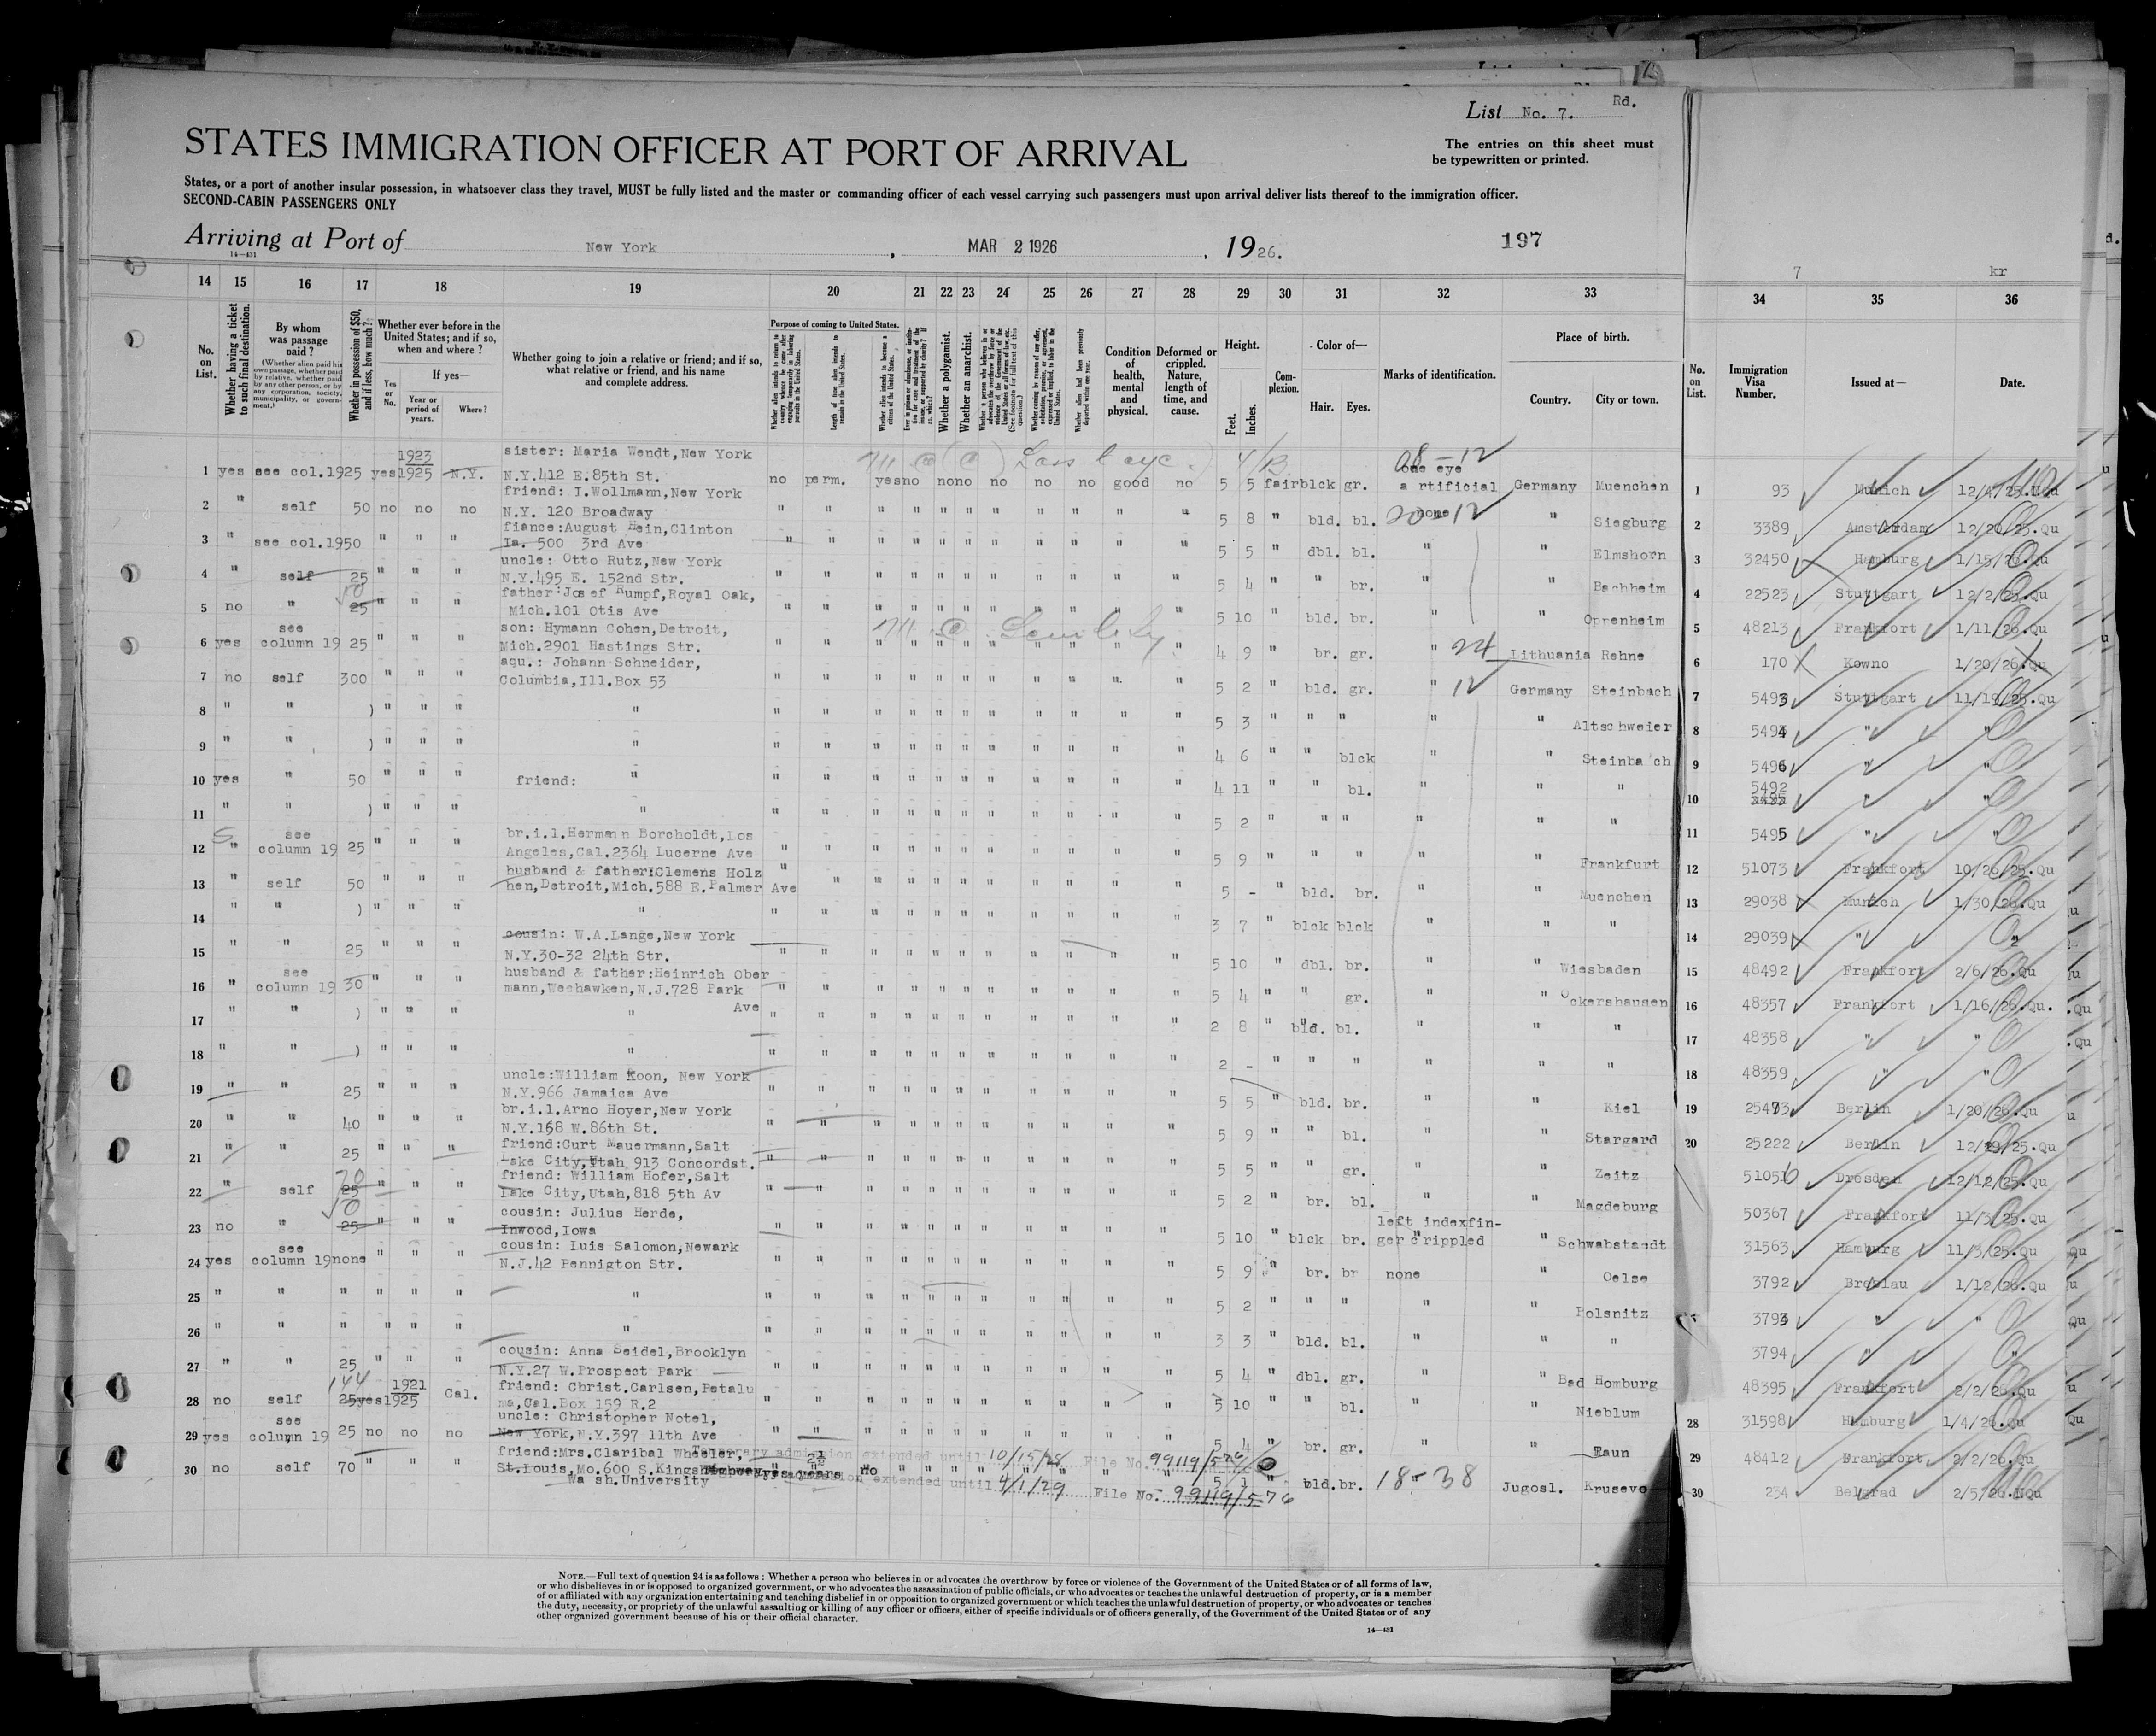 List No. 7. Rd.
STATES IMMIGRATION OFFICER AT PORT OF ARRIVAL
The entries on this sheet must
be typewritten or printed.
States, or a port of another insular possession, in whatsoever class they travel, MUST be fully listed and the master or commanding officer of each vessel carrying such passengers must upon arrival deliver lists thereof to the immigration officer.
SECOND-CABIN PASSENGERS ONLY
Arriving at Port of New York, MAR 2 1926, 1926. 197
14—431
7 kr
14 15 16 17 18 19 20 21 22 23 24 25 26 27 28 29 30 31 32 33 34 35 36
No. on List.
Whether having a ticket to such final destination.
By whom was passage paid?
(Whether alien paid his own passage, whether paid by relative, whether paid by any other person, or by any corporation, society, municipality, or government.)
Whether in possession of $50, and if less, how much?
Whether ever before in the United States; and if so, when and where?
Yes or No.
If yes—
Year or period of years.
Where?
Whether going to join a relative or friend; and if so, what relative or friend, and his name and complete address.
Purpose of coming to United States.
Length of time alien intends to remain in the United States.
Whether alien intends to become a citizen of the United States.
Whether a polygamist.
Whether an anarchist.
Condition of health, mental and physical.
Deformed or crippled. Nature, length of time, and cause.
Height.
Feet. Inches.
Complexion.
Color of—
Hair. Eyes.
Marks of identification.
Place of birth.
Country. City or town.
No. on List.
Immigration Visa Number.
Issued at—
Date.
sister: Maria Wendt, New York
1 yes see col.19 25 yes 1923 1925 N.Y. N.Y.412 E.85th St. no perm. yes no no no no no no good no 5 5 fair blck gr. one eye artificial Germany Muenchen 1 93 Munich 12/4/25.NQu
friend: I.Wollmann, New York
2 " self 50 no no no N.Y. 120 Broadway " " " " " " " " " " " 5 8 " bld. bl. none 20-12 " Siegburg 2 3389 Amsterdam 12/20/25.Qu
fiance: August Hein, Clinton
3 " see col.19 50 " " " Ia. 500 3rd Ave " " " " " " " " " " " 5 5 " dbl. bl. " " Elmshorn 3 32450 Hamburg 1/15/26.Qu
uncle: Otto Rutz, New York
4 " self 25 " " " N.Y.495 E. 152nd Str. " " " " " " " " " " " 5 4 " " br. " " Bachheim 4 22523 Stuttgart 12/2/25.Qu
father: Josef Rumpf, Royal Oak,
5 no " 25 50 " " " Mich.101 Otis Ave " " " " " " " " " " " 5 10 bld. br. " " Oppenheim 5 48213 Frankfort 1/11/26.Qu
son: Hymann Cohen, Detroit,
6 yes see column 19 25 " " " Mich.2901 Hastings Str. " " M.C. Senility " " " 4 9 " br. gr. " 24 Lithuania Rehne 6 170 Kowno 1/20/26.Qu
aqu.: Johann Schneider,
7 no self 300 " " " Columbia, Ill. Box 53 " " " " " " " " " " " 5 2 " bld. gr. " 12 Germany Steinbach 7 5493 Stuttgart 11/19/25.Qu
8 " " ) " " " " " " " " " " " " " " " " 5 3 " " " " " Altschweier 8 5494 " "
9 " " ) " " " " " " " " " " " " " " " " 4 6 " " blck " " Steinbach 9 5496 " "
10 yes " 50 " " " friend: " " " " " " " " " " " " 4 11 " " bl. " " " 10 5492 " "
11 " " ) " " " " " " " " " " " " " " " 5 2 " " " " " " 11 5495 " "
br.i.l. Hermann Borcholdt, Los
12 " see column 19 25 " " " Angeles, Cal.2364 Lucerne Ave " " " " " " " " " " " 5 9 " " " " " Frankfurt 12 51073 Frankfort 10/26/25.Qu
husband & father: Clemens Holz
13 " self 50 " " " hen, Detroit, Mich.588 E.Palmer Ave " " " " " " " " " " " 5 - " bld. br. " " Muenchen 13 29038 Munich 1/30/26.Qu
14 " " ) " " " " " " " " " " " " " " " " 3 7 " blck blck " " " 14 29039 " "
cousin: W.A.Lange, New York
15 " " 25 " " " N.Y.30-32 24th Str. " " " " " " " " " " " 5 10 " dbl. br. " " Wiesbaden 15 48492 Frankfort 2/6/26.Qu
husband & father: Heinrich Ober
16 " see column 19 30 " " " mann, Weehawken, N.J.728 Park Ave " " " " " " " " " " " 5 4 " " gr. " " Ockershausen 16 48357 Frankfort 1/16/26.Qu.
17 " " ) " " " " " " " " " " " " " " " " 2 8 " bld. bl. " " " 17 48358 " "
18 " " ) " " " " " " " " " " " " " " " " 2 - " " " " " " 18 48359 " "
uncle: William Koon, New York
19 " " 25 " " " N.Y.966 Jamaica Ave " " " " " " " " " " " 5 5 " bld. br. " " Kiel 19 25473 Berlin 1/20/26.Qu
br.i.l. Arno Hoyer, New York
20 " " 40 " " " N.Y.168 W.86th St. " " " " " " " " " " " 5 9 " " bl. " " Stargard 20 25222 Berlin 12/29/25.Qu
friend: Curt Mauermann, Salt
21 " " 25 " " " Lake City, Utah 913 Concordst. " " " " " " " " " " " 5 5 " " gr. " " Zeitz 51056 Dresden 12/12/25.Qu
friend: William Hofer, Salt
22 " self 25 70 " " " Lake City, Utah, 818 5th Av " " " " " " " " " " " 5 2 " br. bl. " " Magdeburg 50367 Frankfort 11/3/25.Qu
cousin: Julius Herde,
23 no " 25 50 " " " Inwood, Iowa " " " " " " " " " " " 5 10 " blck br. left indexfinger crippled " Schwabstaedt 31563 Hamburg 11/3/25.Qu
cousin: Luis Salomon, Newark
24 yes see column 19 none " " " N.J.42 Pennigton Str. " " " " " " " " " " " 5 9 " br. br none " Oelse 3792 Breslau 1/12/26.Qu
25 " " " " " " " " " " " " " " " " " " 5 2 " " " " " Polsnitz 3793 " "
26 " " " " " " " " " " " " " " " " " " 3 3 " bld. bl. " " " 3794 "
cousin: Anna Seidel, Brooklyn
27 " " 25 " " " N.Y.27 W.Prospect Park " " " " " " " " " " " 5 4 " dbl. gr. " " Bad Homburg 48395 Frankfort 2/2/26.Qu
friend: Christ. Carlsen, Petalu
28 no self 25 144 yes 1921 1925 Cal. ma, Cal. Box 159 R.2 " " " " " " " " " " " 5 10 " " bl. " " Nieblum 28 31598 Hamburg 1/4/26.Qu
uncle: Christopher Notel,
29 yes see column 19 25 no no no New York, N.Y.397 11th Ave " " " " " " " " " " " 5 4 " br. gr. " " Zaun 29 48412 Frankfort 2/2/26.Qu
friend: Mrs. Claribal Wheeler, Temporary admission extended until 10/15/28 File No. 99119/576
30 no self 70 " " " St.Louis, Mo.600 S.Kingshighway yes 2½ years no " " " " " " " " 5 1 " bld. br. 18-38 Jugosl. Krusevo 30 234 Belgrad 2/5/26.NQu
Wash. University extended until 4/1/29 File No. 99119/576
NOTE.—Full text of question 24 is as follows: Whether a person who believes in or advocates the overthrow by force or violence of the Government of the United States or of all forms of law,
or who disbelieves in or is opposed to organized government, or who advocates the assassination of public officials, or who advocates or teaches the unlawful destruction of property, or is a member
of or affiliated with any organization entertaining and teaching disbelief in or opposition to organized government or which teaches the unlawful destruction of property, or who advocates or teaches
the duty, necessity, or propriety of the unlawful assaulting or killing of any officer or officers, either of specific individuals or of officers generally, of the Government of the United States or of any
other organized government because of his or their official character.
14—431